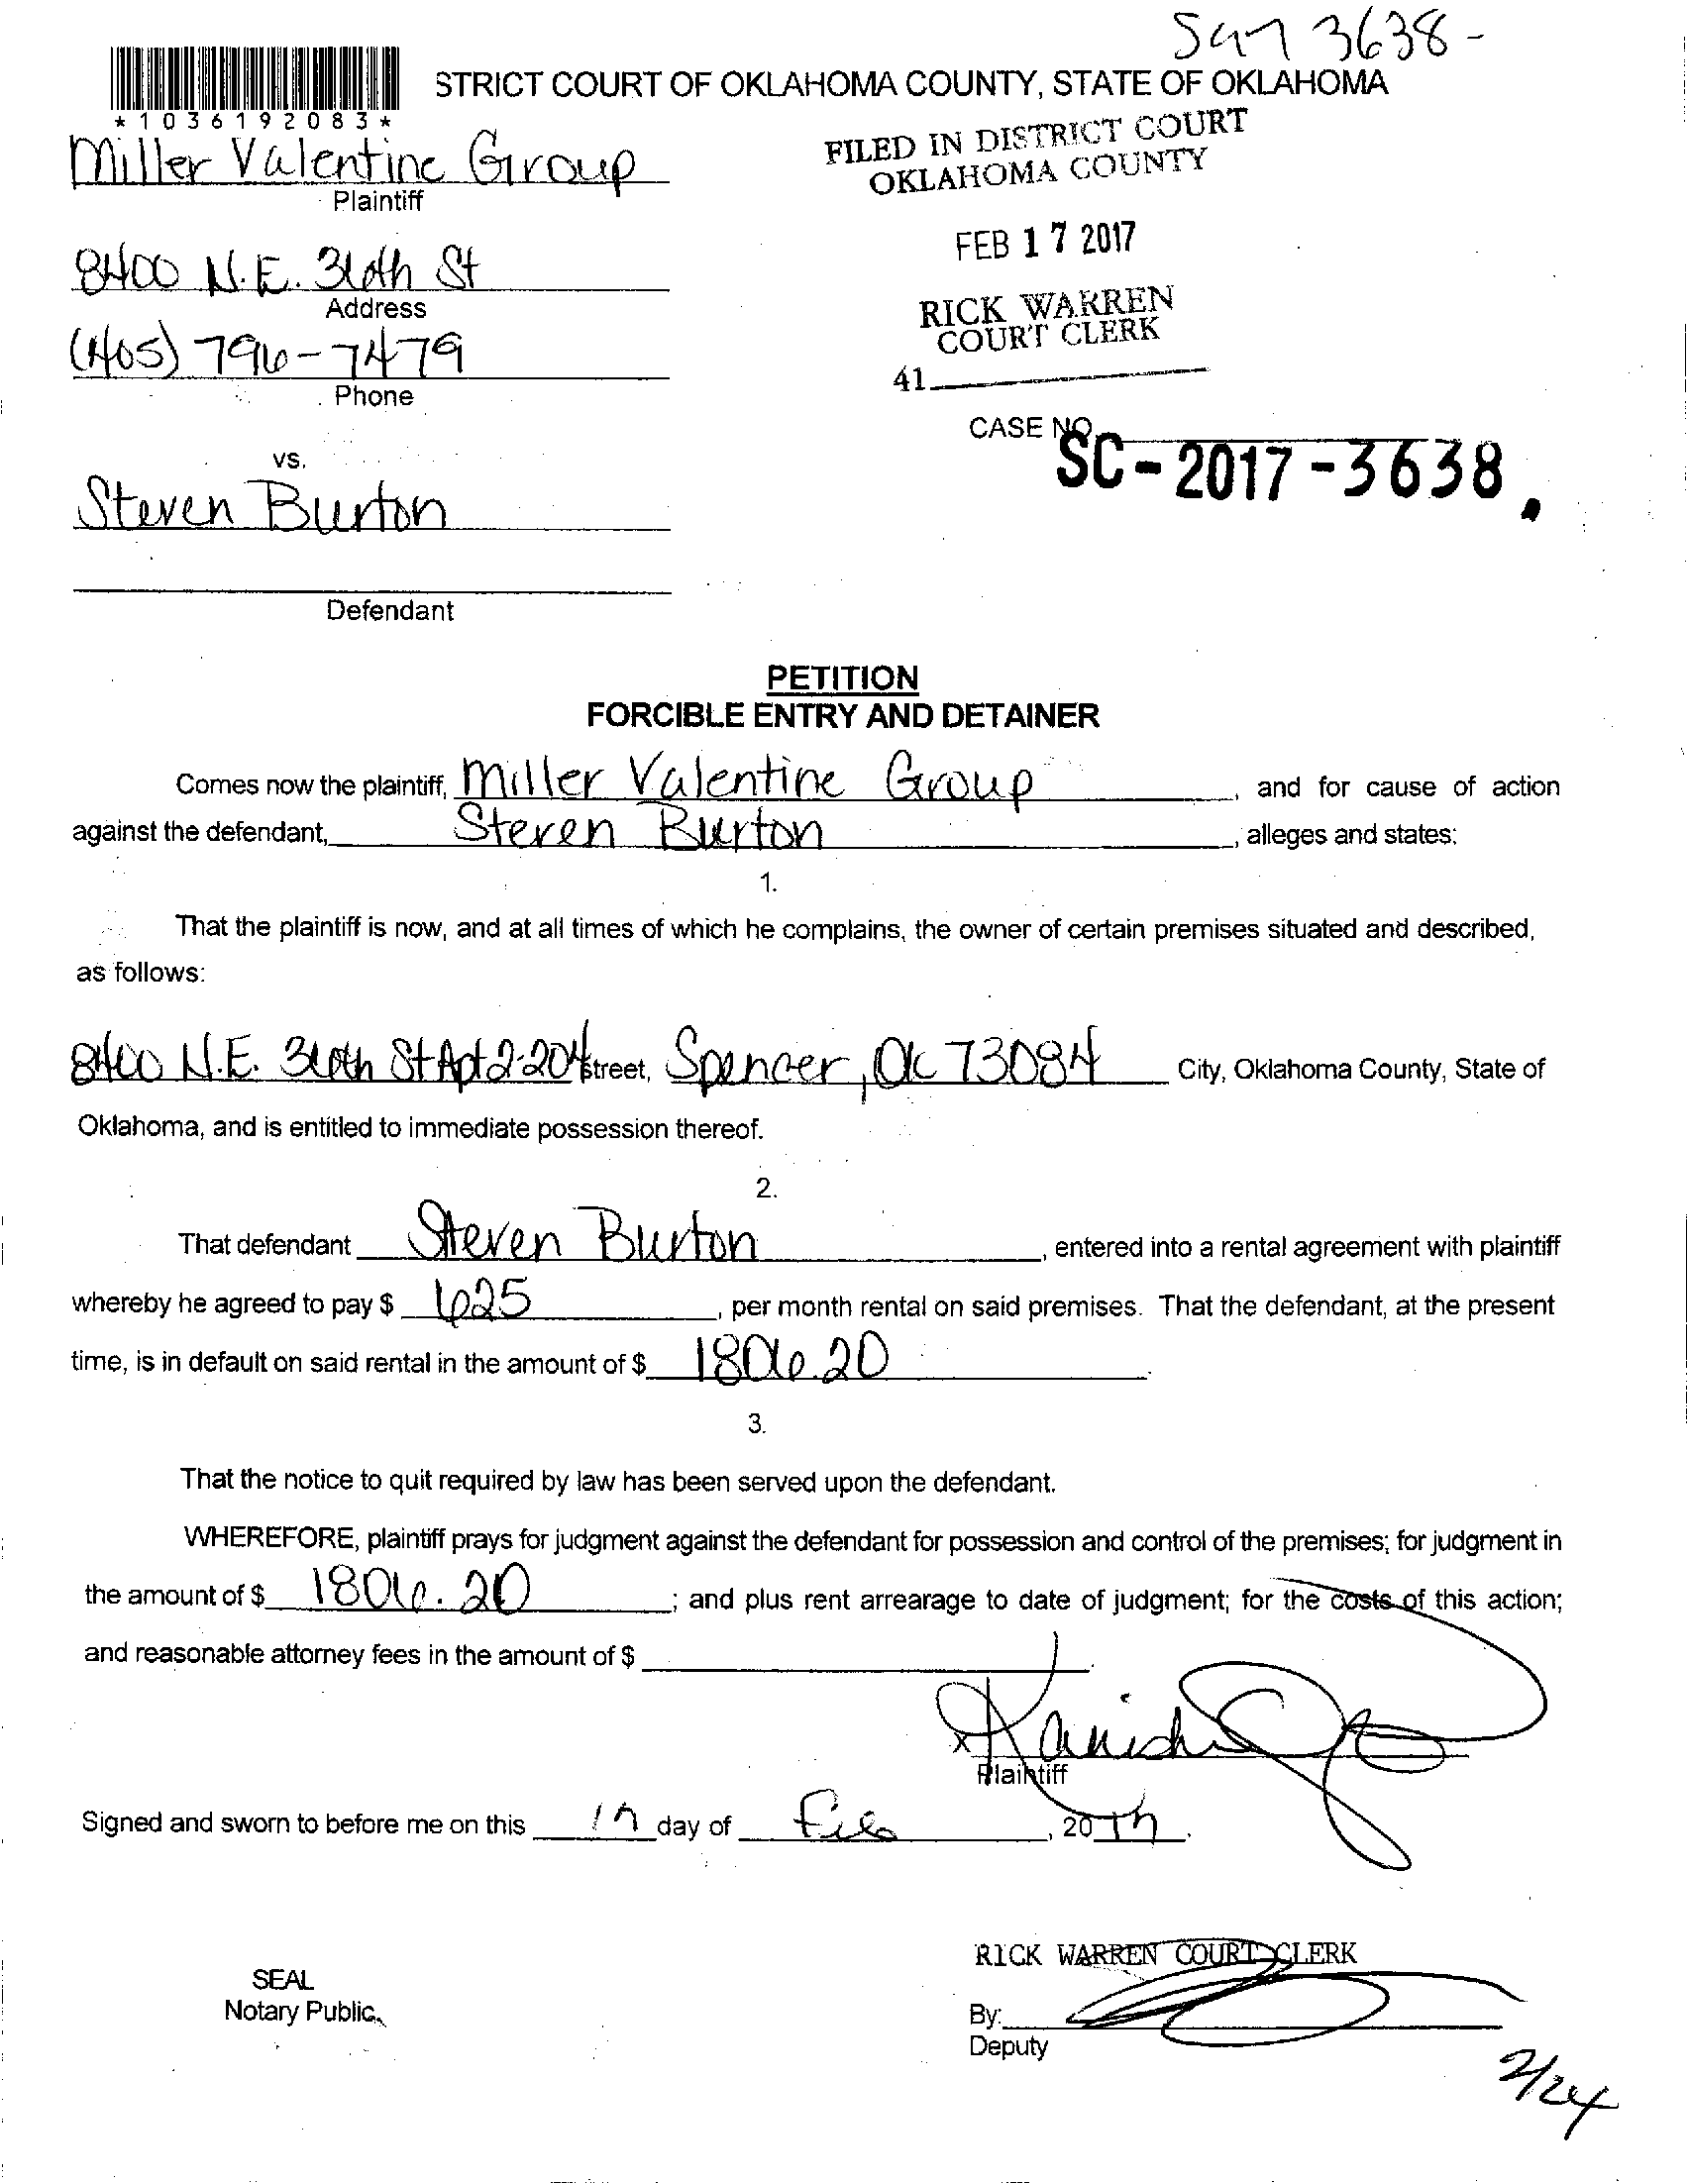 San 3638-
STRICT COURT OF OKLAHOMA COUNTY, STATE OF OKLAHOMA
*1036192083*
Miller Valentine Group
Plaintiff
FILED IN DISTRICT COURT
OKLAHOMA COUNTY
FEB 17 2017
8400 N.E. 36th St
Address
RICK WARREN
COURT CLERK
(405) 796-7479
Phone
41
CASE NO.
SC-2017-3638
vs.
Steven Burton
Defendant
PETITION
FORCIBLE ENTRY AND DETAINER
Comes now the plaintiff, Miller Valentine Group, and for cause of action
against the defendant, Steven Burton, alleges and states:
1.
That the plaintiff is now, and at all times of which he complains, the owner of certain premises situated and described,
as follows:
8400 N.E. 36th St Apt 2-204 street, Spencer, OK 73084 City, Oklahoma County, State of
Oklahoma, and is entitled to immediate possession thereof.
2.
That defendant Steven Burton, entered into a rental agreement with plaintiff
whereby he agreed to pay $ 625, per month rental on said premises. That the defendant, at the present
time, is in default on said rental in the amount of $ 1806.20.
3.
That the notice to quit required by law has been served upon the defendant.
WHEREFORE, plaintiff prays for judgment against the defendant for possession and control of the premises; for judgment in
the amount of $ 1806.20; and plus rent arrearage to date of judgment; for the costs of this action;
and reasonable attorney fees in the amount of $
x
Plaintiff
Signed and sworn to before me on this 17 day of Feb, 2017.
RICK WARREN COURT CLERK
SEAL
Notary Public
By:
Deputy
2/24